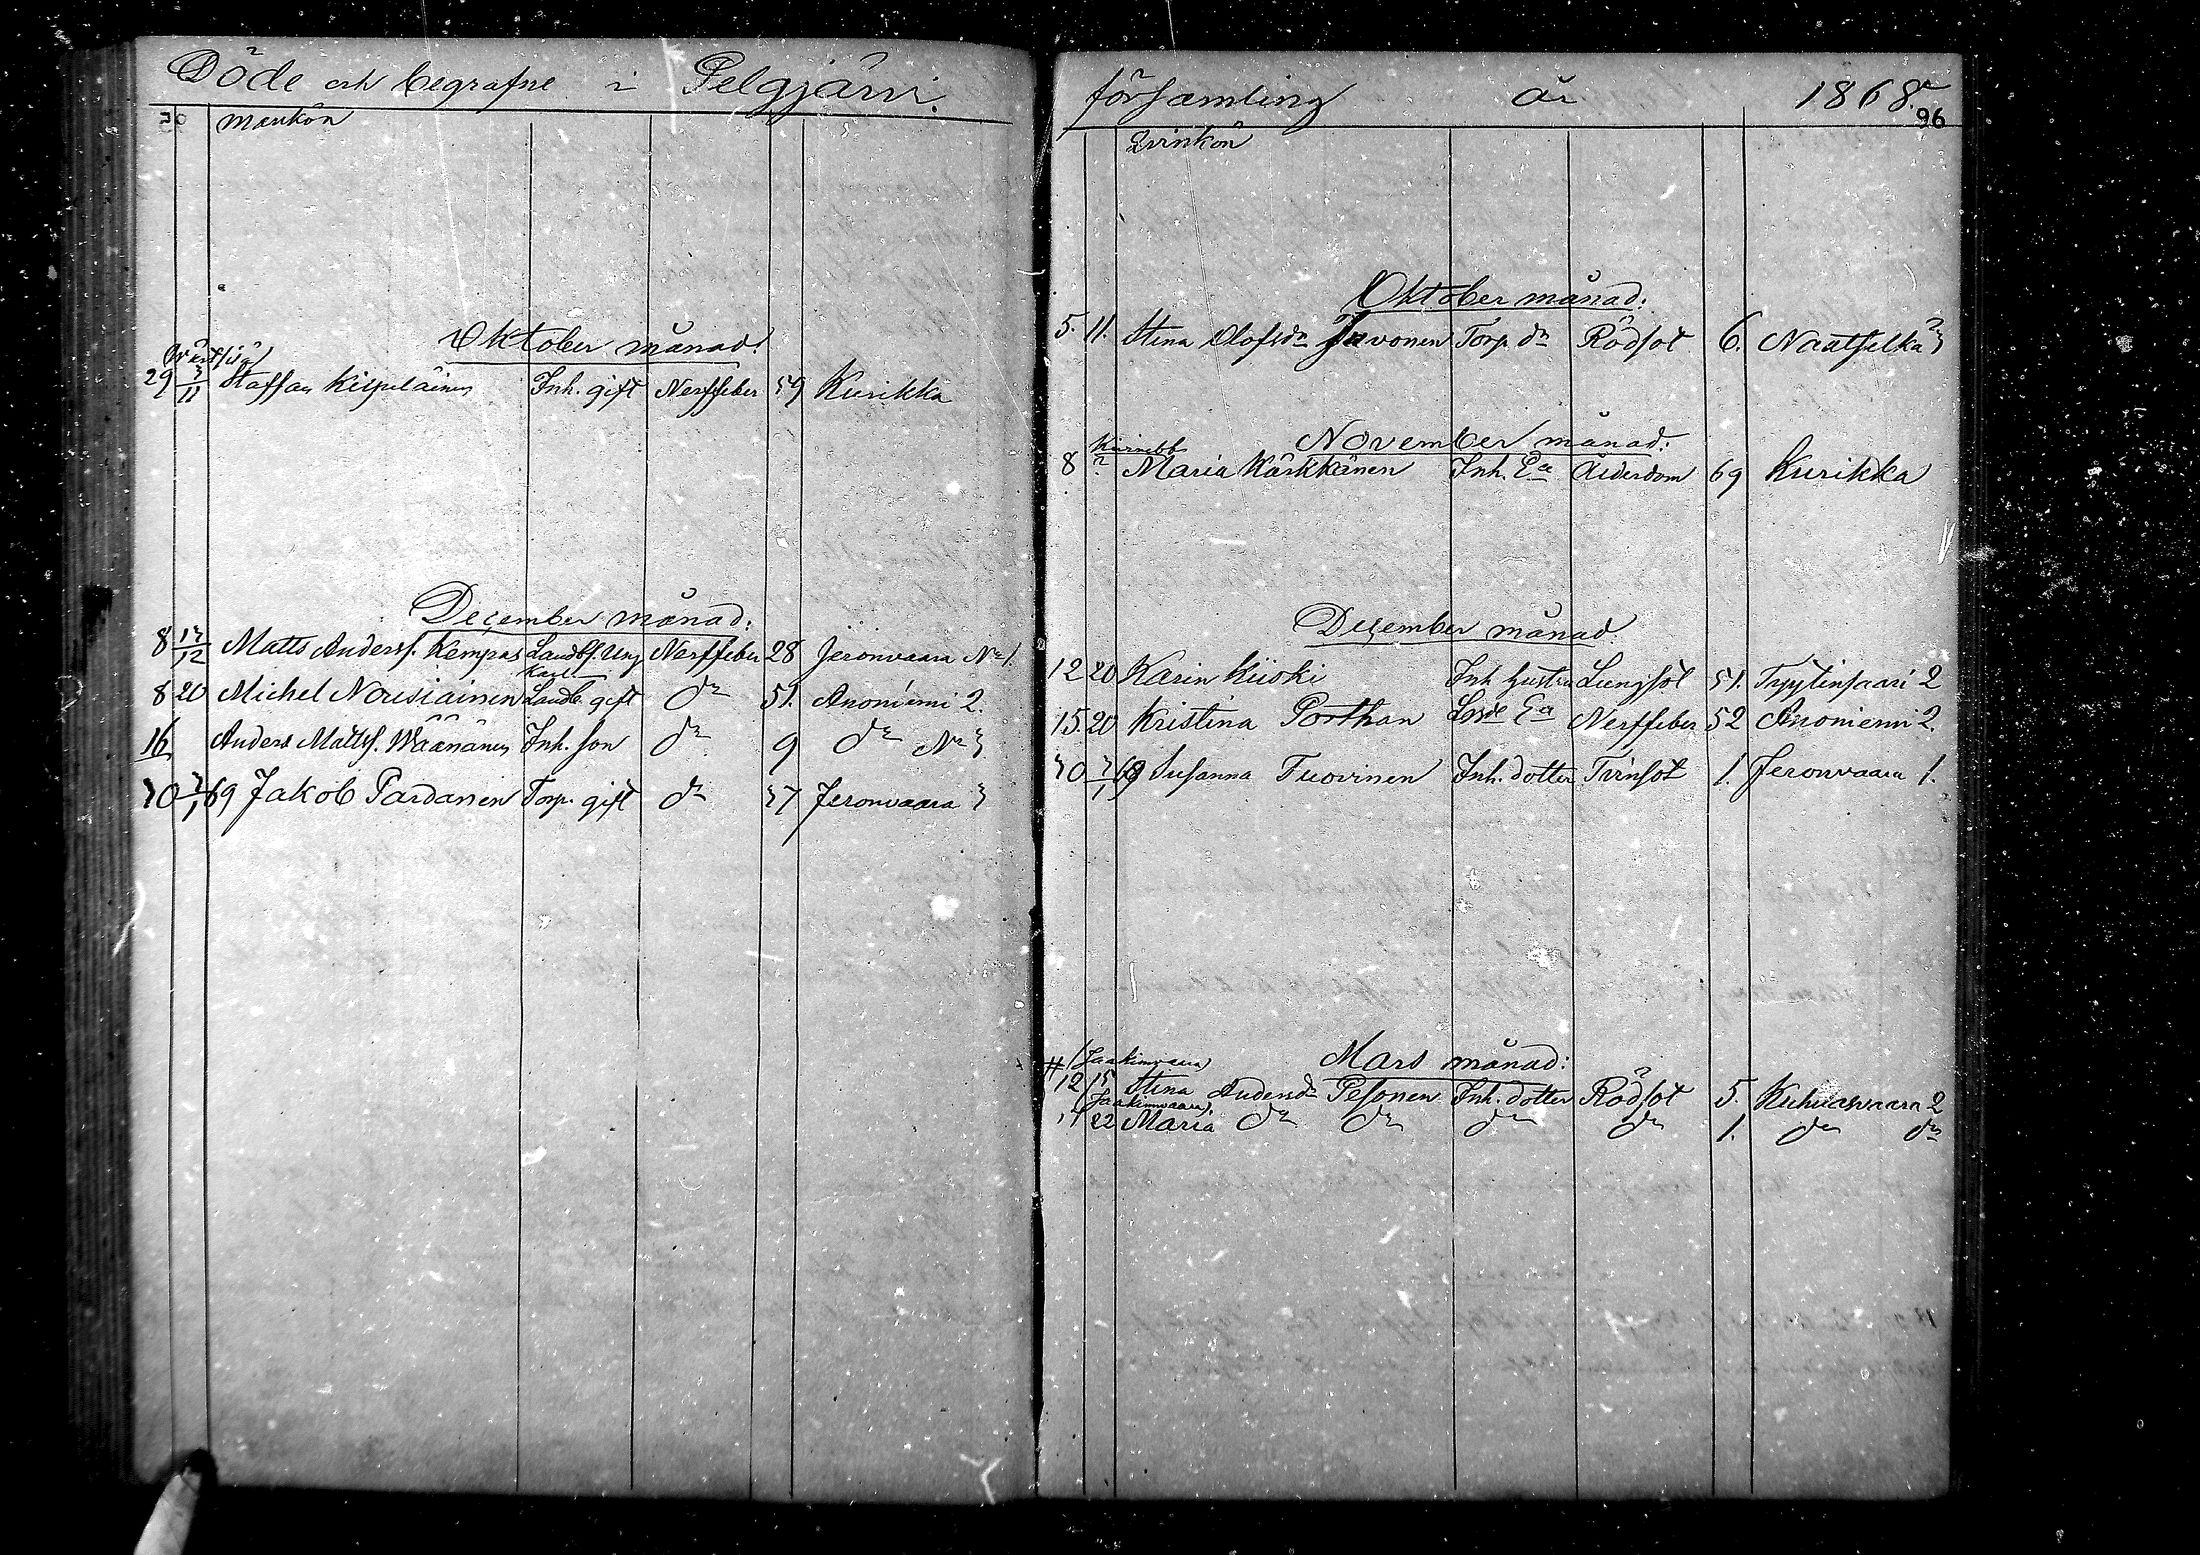 Döde och begrafne i Pelgjärvi.
mankön
Oktober månad:
29 3/11 Staffan Kispeläinen Inh. gift Nerffeber 59 Kurikka
December månad:
8 13/12 Matts Anderss. Kempas Landbs. Ung Nerffeber 28 Jeronvaara No 1.
karl
8 20 Michel Nousiainen Landb. gift do 51. Anoniemi 2.
16 Anders Matts. Wäänänen Inh. son do 9 do No 3
30 3/1 69 Jakob Pardanen Torp. gift do 37 Jeronvaara 3
församling år 1868.
96
Qvinkön
Oktober månad:
5. 11. Stina Olofsdr Javonen Torp. dr Rödsot 6. Naatselkä 3
November månad:
8 Maria Kärkkänen Inh. Ea Ålderdom 69 Kurikka
December månad
12 20 Karin Kiiski Inh hustru Lungsot 51. Tryytinsaari 2
15. 20 Kristina Porthan Lssde Ea Nerffeber 52 Anoniemi 2.
30 3/1 69 Susanna Tuovinen Inh. dotter Tvinsot 1. Jeronvaara 1.
Mars månad:
# (Jaakimvaara)
12 15 Stina Andersdr Pesonen Inh. dotter Rödsot 5. Kuhuasvaara 2
(Jaakimvaara).
17 22 Maria do do do do 1. do do